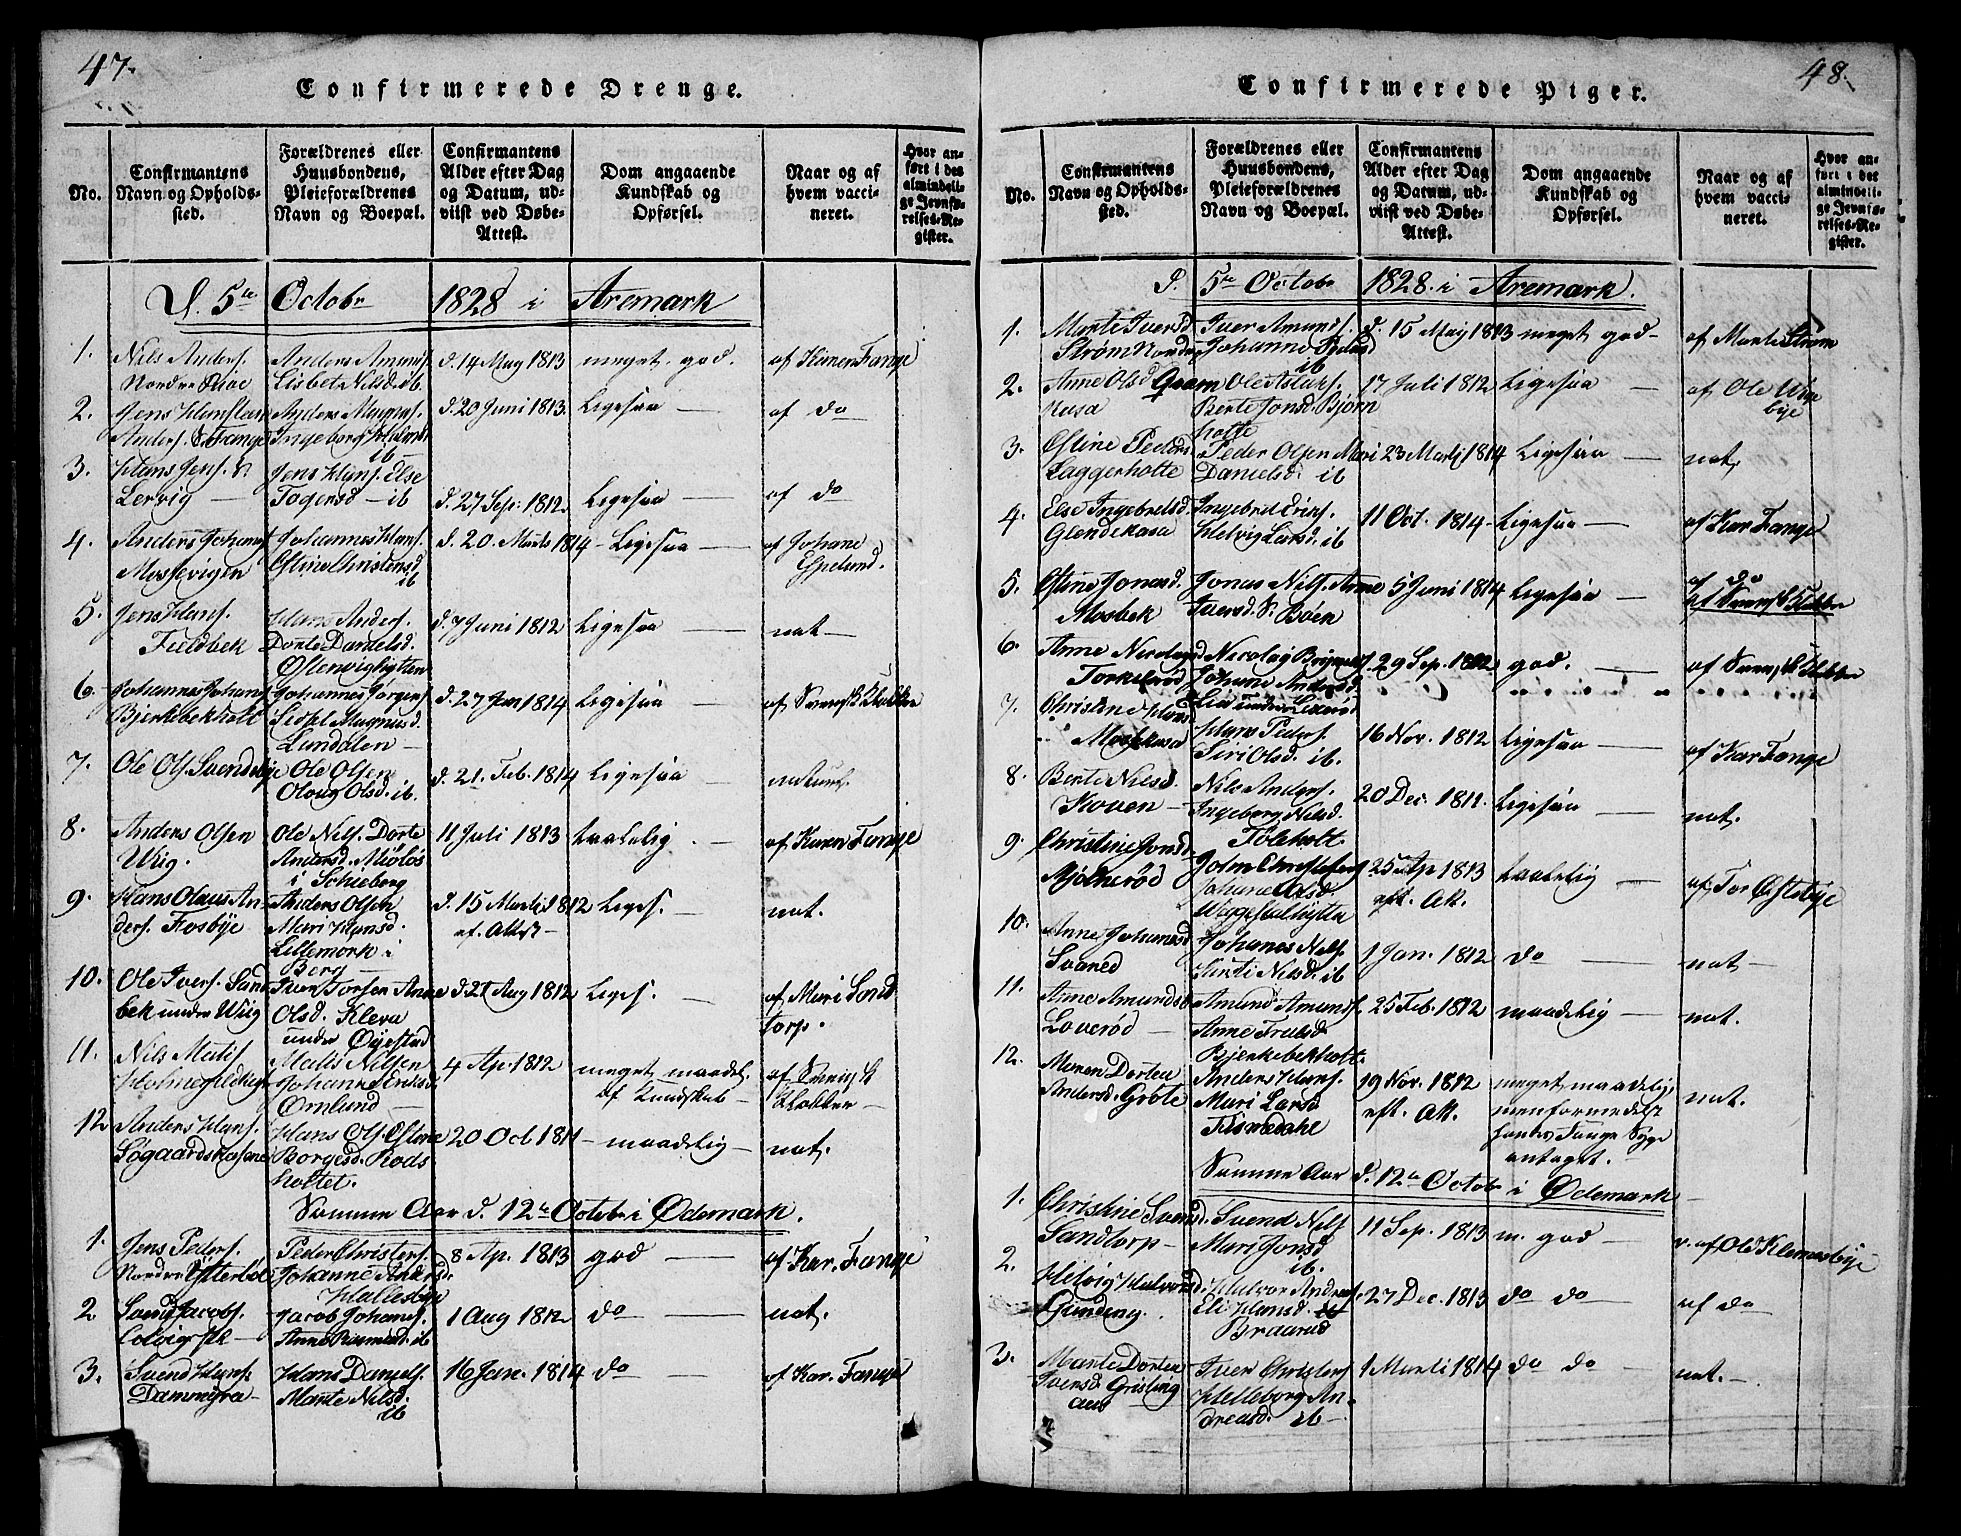 47.
Confirmerede Drenge.
No.
Confirmantens
Navn og Opholds-
sted.
Forældrenes eller
Huusbondens,
Pleieforældrenes
Navn og Boepæl.
Confirmantens
Alder efter Dag
og Datum, ud-
viist ved Døbe-
Attest.
Dom angaaende
Kundskab og
Opførsel.
Naar og af
hvem vacci-
neret.
Hvor an-
ført i det
almindeli-
ge Jevnfø-
relses-Re-
gister.
D. 5te Octobr 1828 i Aremark
1.
Nils Anders.
Nordre
Anders Amunds.
Lisbet Nilsd. ib
d. 14 May 1813
meget god.
af Karen Fange
2.
Jens
Anders. Fange
Anders Magnes.
Ingeborg
ib
d. 20 Juni 1813.
Ligesaa
af do
3.
Hans Jens.
Lervig
Jens Hans. Else
Togersd ib
d. 27 Sep. 1812.
Ligesaa
af do
4.
Anders Johans
Mossevigen
Johannes Hans.
Christensd.
ib
d. 20. Marti 1814
Ligesaa
af Johane
Espelund.
5.
Jens Hans.
Fieldbek
Hans Anders.
Dorte Danielsd.
d. 7 Juni 1812
Ligesaa
nat
6.
Johannes Johans
Bjerkebekholt
Johannes Jörgens
Magnusd.
Lundalen
d. 27 Jan 1814
Ligesaa
af Svensk Klokker
7.
Ole Ols. Svendsbye
Ole Olsen
Oloug Olsd. ib.
d. 21. Feb. 1814
Ligesaa
naturl.
8.
Anders Olsen
Wiig.
Ole Nils. Dorte
Andersd.
i Schieberg
11 Juli 1813
taalelig.
af Karen Fange
9.
Hans Olaus An-
ders. Fosbye
Anders Olsen
Mari Hansd.
Lillemork i
Berg
d. 15 Marti 1812
ef. Attest
Liges.
nat.
10.
Ole Ivers. Sand
bek under Wiig
Iver Torsen Anne
Olsd. Kleva
under Øyestad
d 21 Aug 1812
Liges.
af Mari Sand
torp.
11.
Nils Matis.
Matis Nilsen
Johanne
Ørnlund
4 Ap. 1812
meget maadel.
af Kundskab
af Svensk
Klokker
12
Anders Hans.
Søgaardskasene
Hans Ols.
Borgesd. Røds
hottet.
20 Oct 1811
maadelig
nat.
Samme Aar d. 12te Octobr i Ødemark.
1.
Jens Peders.
Nordre Østerbøe
Peder Christens.
Johanne Andersd.
Hallesbye
8 Ap. 1813
god
af Kar. Fange
2
Svend Jacobs.
Jacob Johans.
Anne ib
1 Aug 1812
do
nat.
3.
Svend Hans.
Dammegra
Hans Daniels.
Marte Nilsd.
ib
16 Jan. 1814
do
af Kar. Fange
48.
Confirmerede Piger.
No.
Confirmantens
Navn og Opholds-
sted.
Forældrenes eller
Huusbondens,
Pleieforældrenes
Navn og Boepæl.
Confirmantens
Alder efter Dag
og Datum, ud-
viist ved Døbe-
Attest.
Dom angaaende
Kundskab og
Opførsel.
Naar og af
hvem vacci-
neret.
Hvor an-
ført i det
almindeli-
ge Jevnfø-
relses-Re-
gister.
D. 5te Octobr 1828. i Aremark.
1.
Marte Iversd
Strøm Nordre
Iver Amunds.
Johanne
ib
d. 15 May 1813
meget god
af Marte Strøm
2.
Anne Olsd
Ole Aslaks.
Berte Jonsd. Bjørn
hotte
17 Juli 1812
Ligesaa
af Ole Wii
bye
3.
Peders
Laggerholte
Peder Olsen Mari
Danielsd. ib
23 Marti 1814
Ligesaa
nat,
4.
Else Ingebretsd.
Glendekasa
Ingebret Erics.
Helvig Larsd. ib
11 Oct. 1814
Ligesaa
af Kar. Fange
5.
Jonasd.
Mosbek
Jonas Nils. Anne
Iversd. S. Bøen
5 Juni 1814
Ligesaa
af do
6.
Anne Nicolaysd
Torkelsrød
Nicolay
Johanne Andersd.
29 Sep. 1812
god.
af Svensk Klokker
7.
Christine Hans
Hans Peders.
Siri Olsd. ib.
16 Nov. 1812
Ligesaa
af Kar Fange
8.
Berte Nilsd.
Skoven
Nils Anders.
Ingeborg Nilsd.
20 Dec. 1811.
Ligesaa
nat.
9.
Christine Jonsd.
Mjølnerød
John Christofers
Johane
25 Ap 1813
eft. Att.
taalelig
af Tor Østebye
10.
Anne Johansd
Svaned
Johanes Nils.
Nilsd. ib
1 Jan. 1812
do
nat
11.
Anne Amundsd
Loverød
Amund Amunds.
Anne Truls
Bjerkebekholt.
25 Feb. 1812
maadelig
nat.
12.
Maren Dortea
Andersd. Grote
Anders Hans.
Mari Larsd
19 Nov. 1812
eft. Att.
meget maadelig,
men formedelst
antaget.
nat.
Samme Aar d. 12te Octobr i Ødemark
1.
Christine Svensd.
Sandtorp
Svend Nils
Mari Jonsd
ib.
11 Sep. 1813
m. god
v. af Ole Klemesbye
2.
Helvig Halvorsd
Halvor Anders.
Eli Hansd.
Braarud
27 Dec. 1813
do do
af do
3.
Marte Dortea
Iversd. Grisling
aas
Iver Christens
Helleborg An-
dreasd. ib
1 Marti 1814
do do
nat.